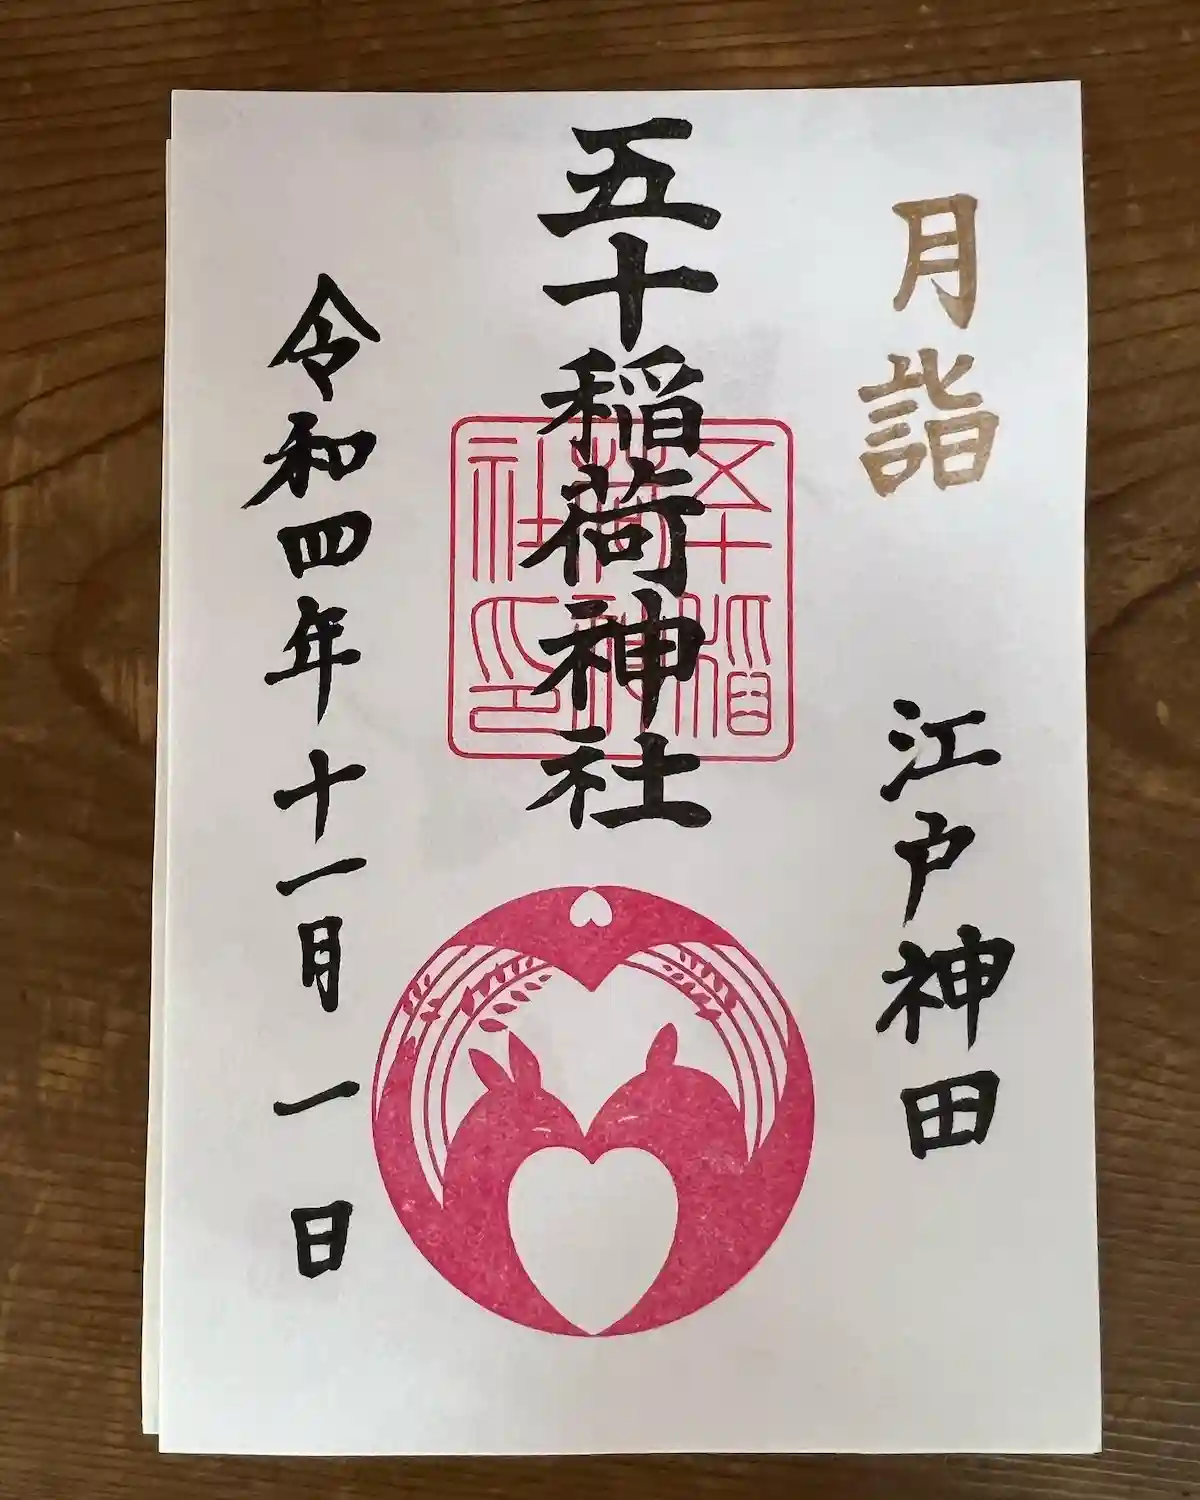 月詣
江戸神田
五十稲荷神社
五十稲荷神社印
令和四年十一月一日